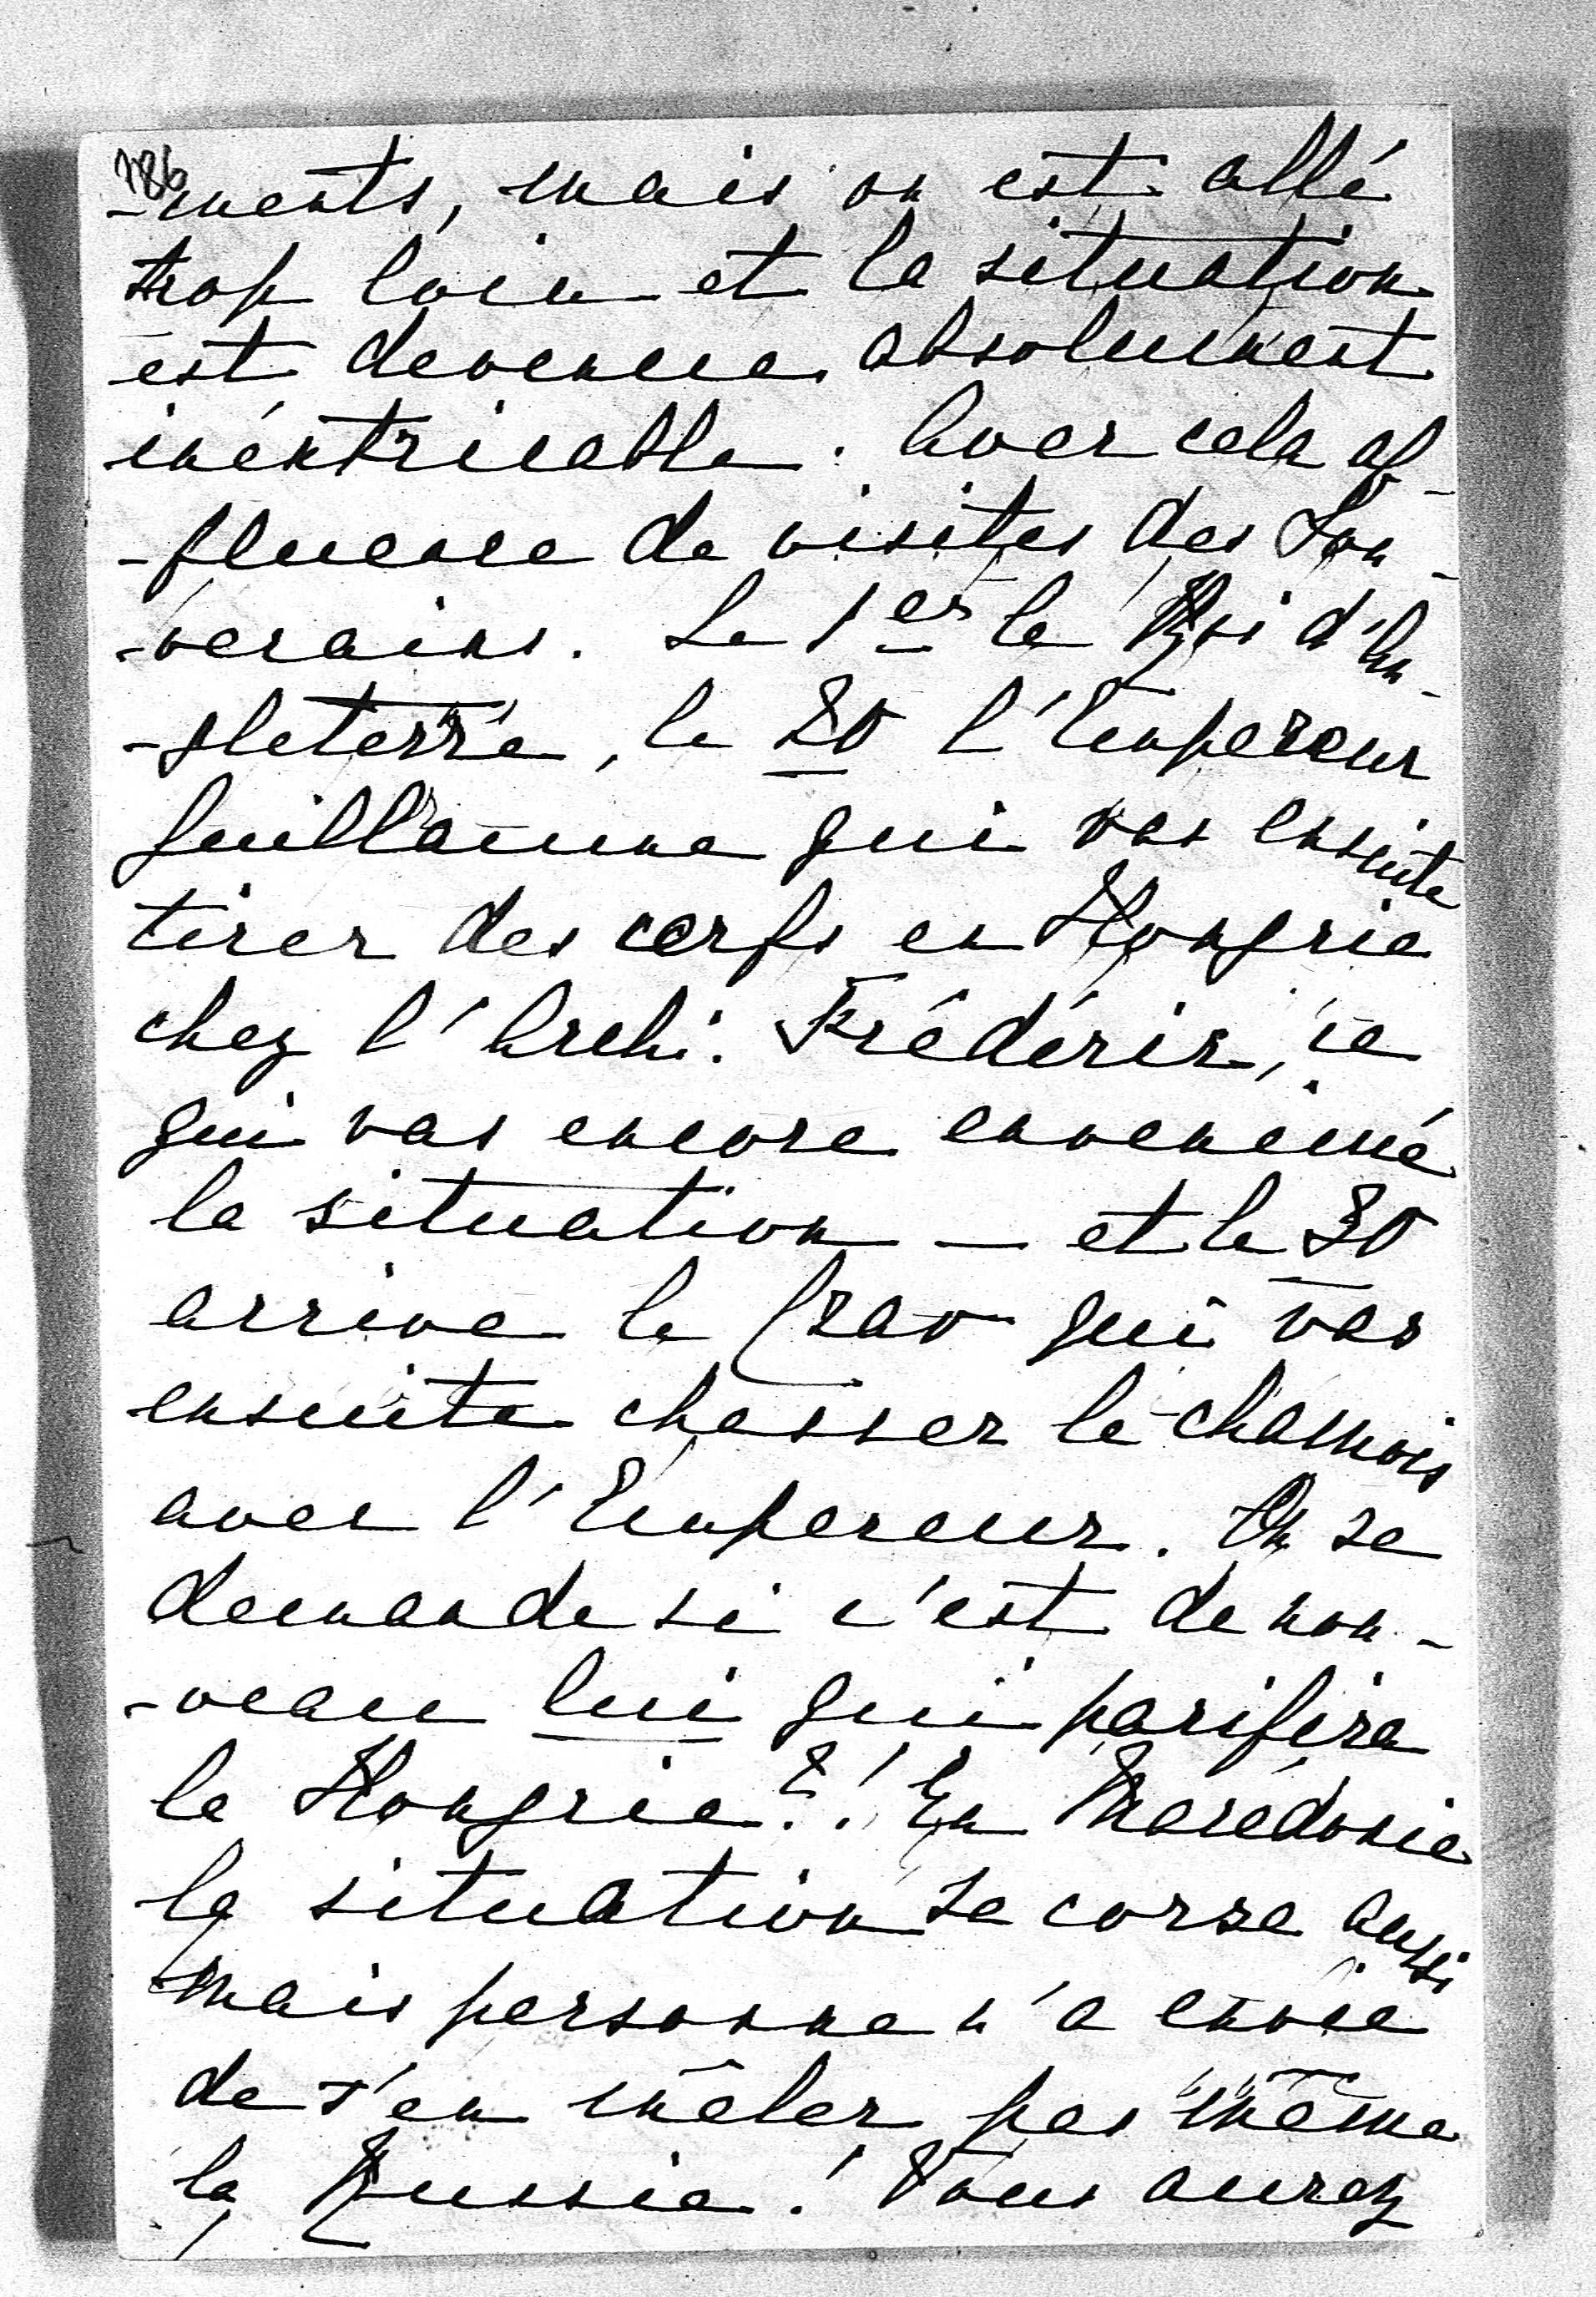 186
-ments, mais on est allé
trop loin et la situation
est devenue absolument
inéxtricable. Avec cela af-
-fluence de visites des Sou-
-verains. Le 1er le Roi d'An-
-gleterre, le 20 l'Empereur
Guillaume qui vas ensuite
tirer des cerfs en Hongrie
chez l'Archi. Frédéric, ce
qui vas encore envenimé
la situation — et le 30
arrive le Czar qui vas
ensuite chasser le chamois
avec l'Empereur. On se
demande si c'est de nou-
-veau lui qui pacifira
la Hongrie?! En Macédonie
la situation se corse aussi
mais personne n'a envie
de s'en mêler pas même
la Russie! Vous aurez